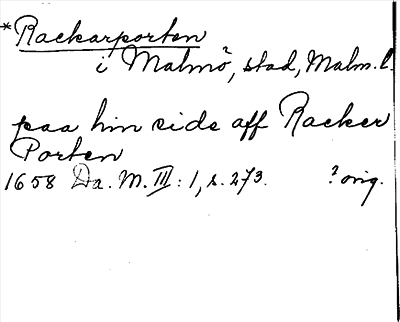 *Rackarporten
i Malmö, stad, Malm. l.
paa hin side aff Racker
Porten
1658 Da. M. III: 1, s. 273. ? orig.